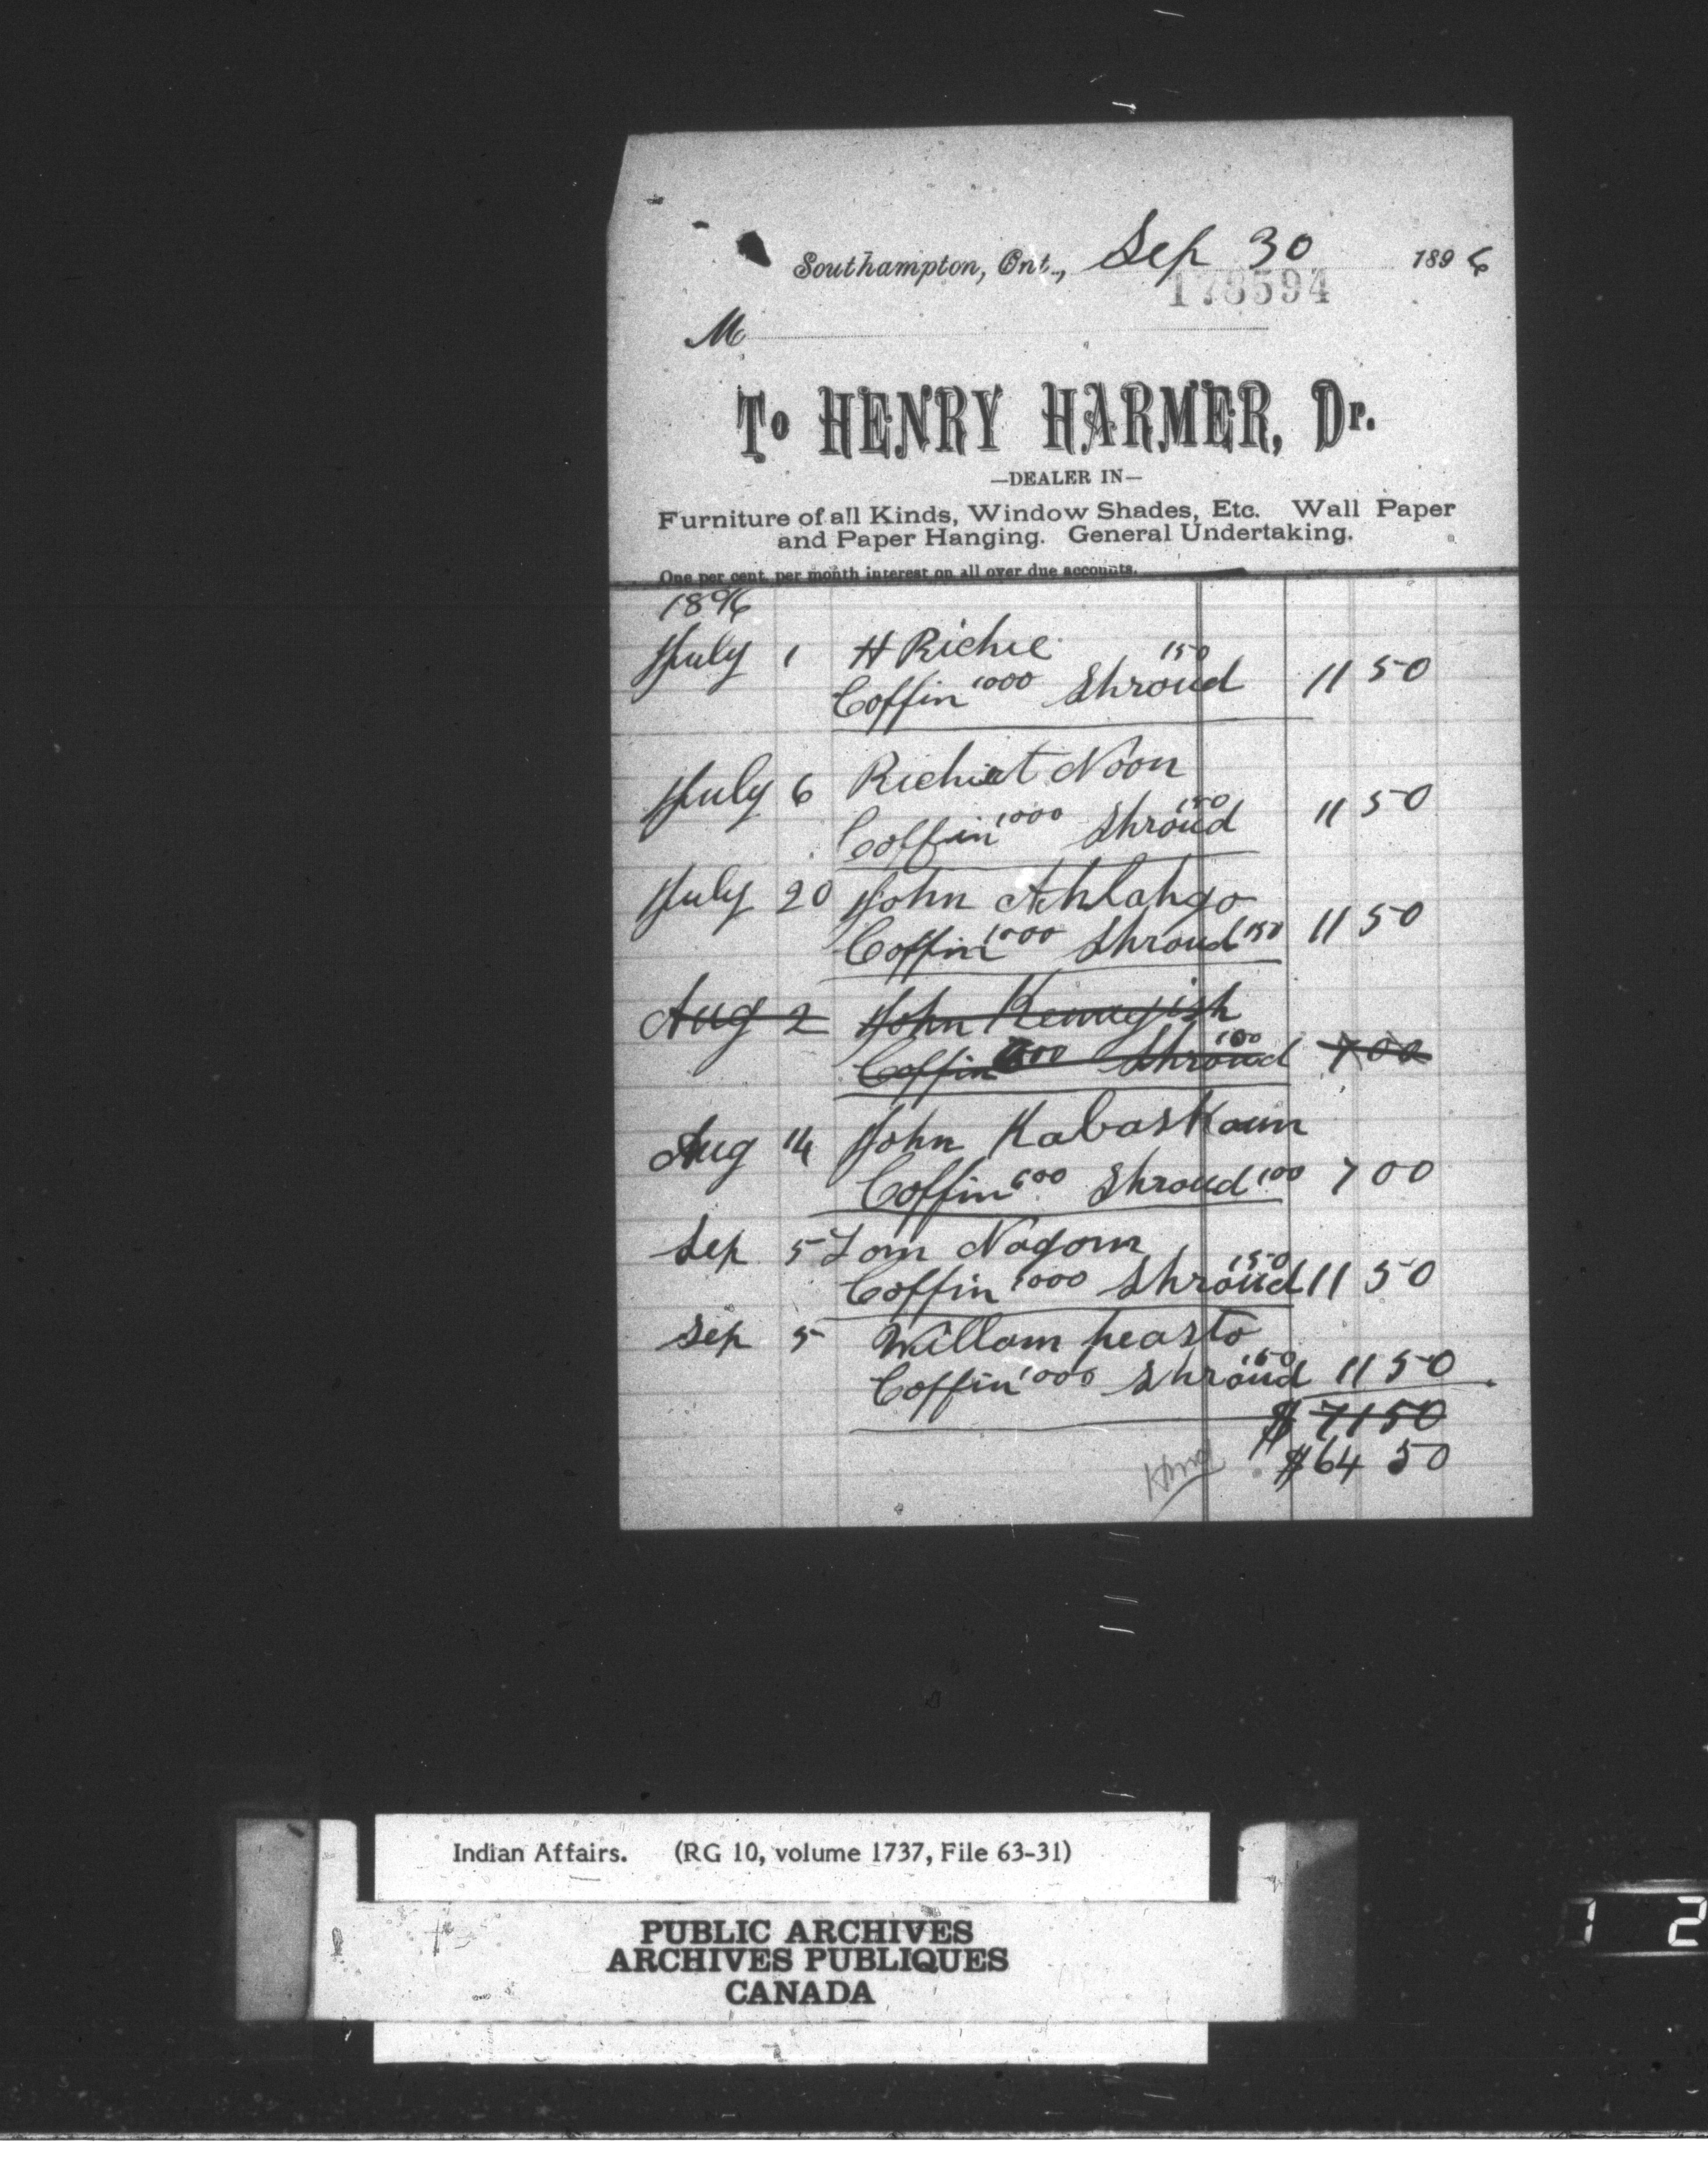 Southampton, Ont., Sep 30 1896
178594
M
To HENRY HARMER, Dr.
—DEALER IN—
Furniture of all Kinds, Window Shades, Etc. Wall Paper
and Paper Hanging. General Undertaking.
One per cent. per month interest on all over due accounts.
1896
July 1 H Richie
Coffin 1000 Shroud 150 11 50
July 6 Noon
Coffin 1000 Shroud 150 11 50
July 20 John Ahlahgo
Coffin 1000 Shroud 150 11 50
Aug 2 John
Coffin 600 Shroud 100 7 00
Aug 14 John Kabaskaum
Coffin 600 Shroud 100 7 00
Sep 5 Tom Nagom
Coffin 1000 Shroud 150 11 50
Sep 5 Willam peasto
Coffin 1000 Shroud 150 11 50
$ 71 50
$64 50
Indian Affairs. (RG 10, volume 1737, File 63-31)
PUBLIC ARCHIVES
ARCHIVES PUBLIQUES
CANADA
1 2